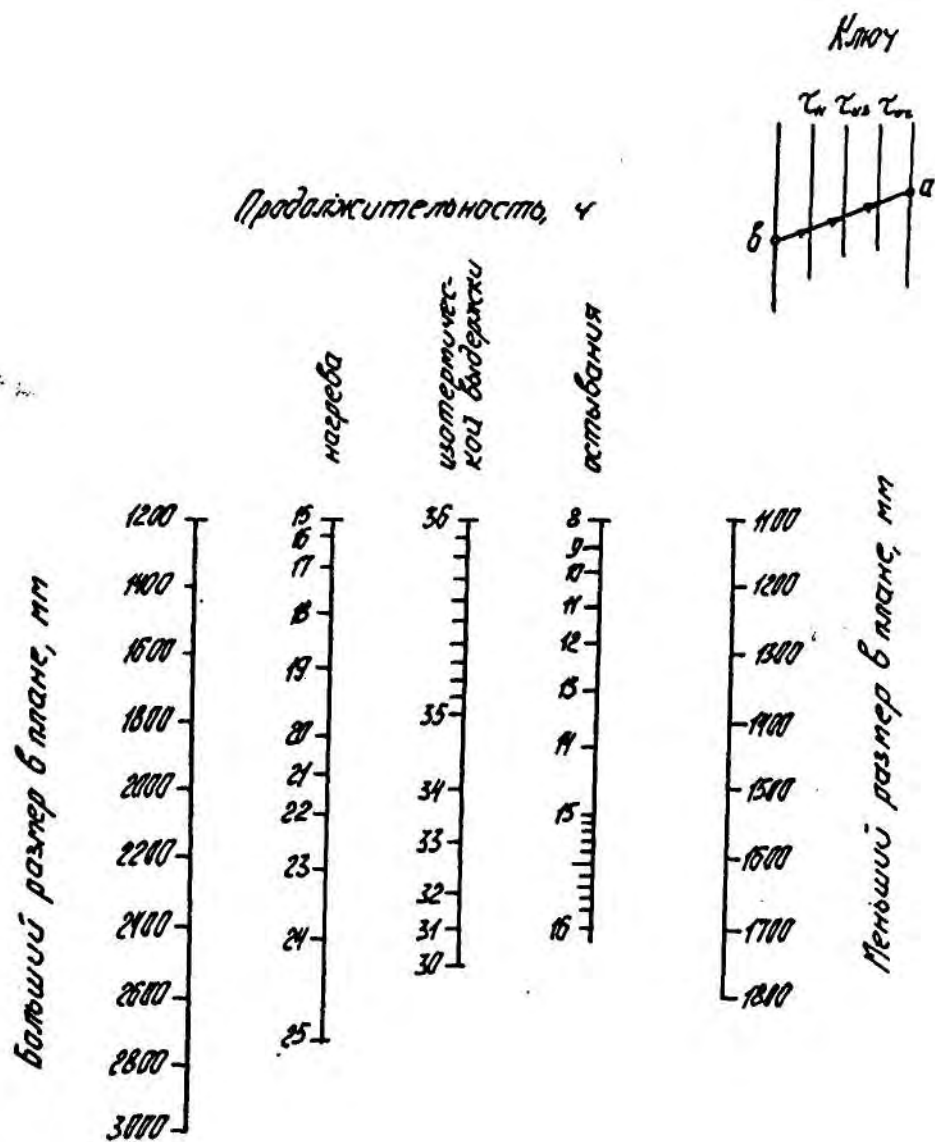 Ключ
τн τиз τос
a
в
Продолжительность, ч
нагрева
изотермичес-
кой выдержки
остывания
Больший размер в плане, мм
1200
1400
1600
1800
2000
2200
2400
2600
2800
3000
15
16
17
18
19
20
21
22
23
24
25
36
35
34
33
32
31
30
8
9
10
11
12
13
14
15
16
1100
1200
1300
1400
1500
1600
1700
1800
Меньший размер в плане, мм